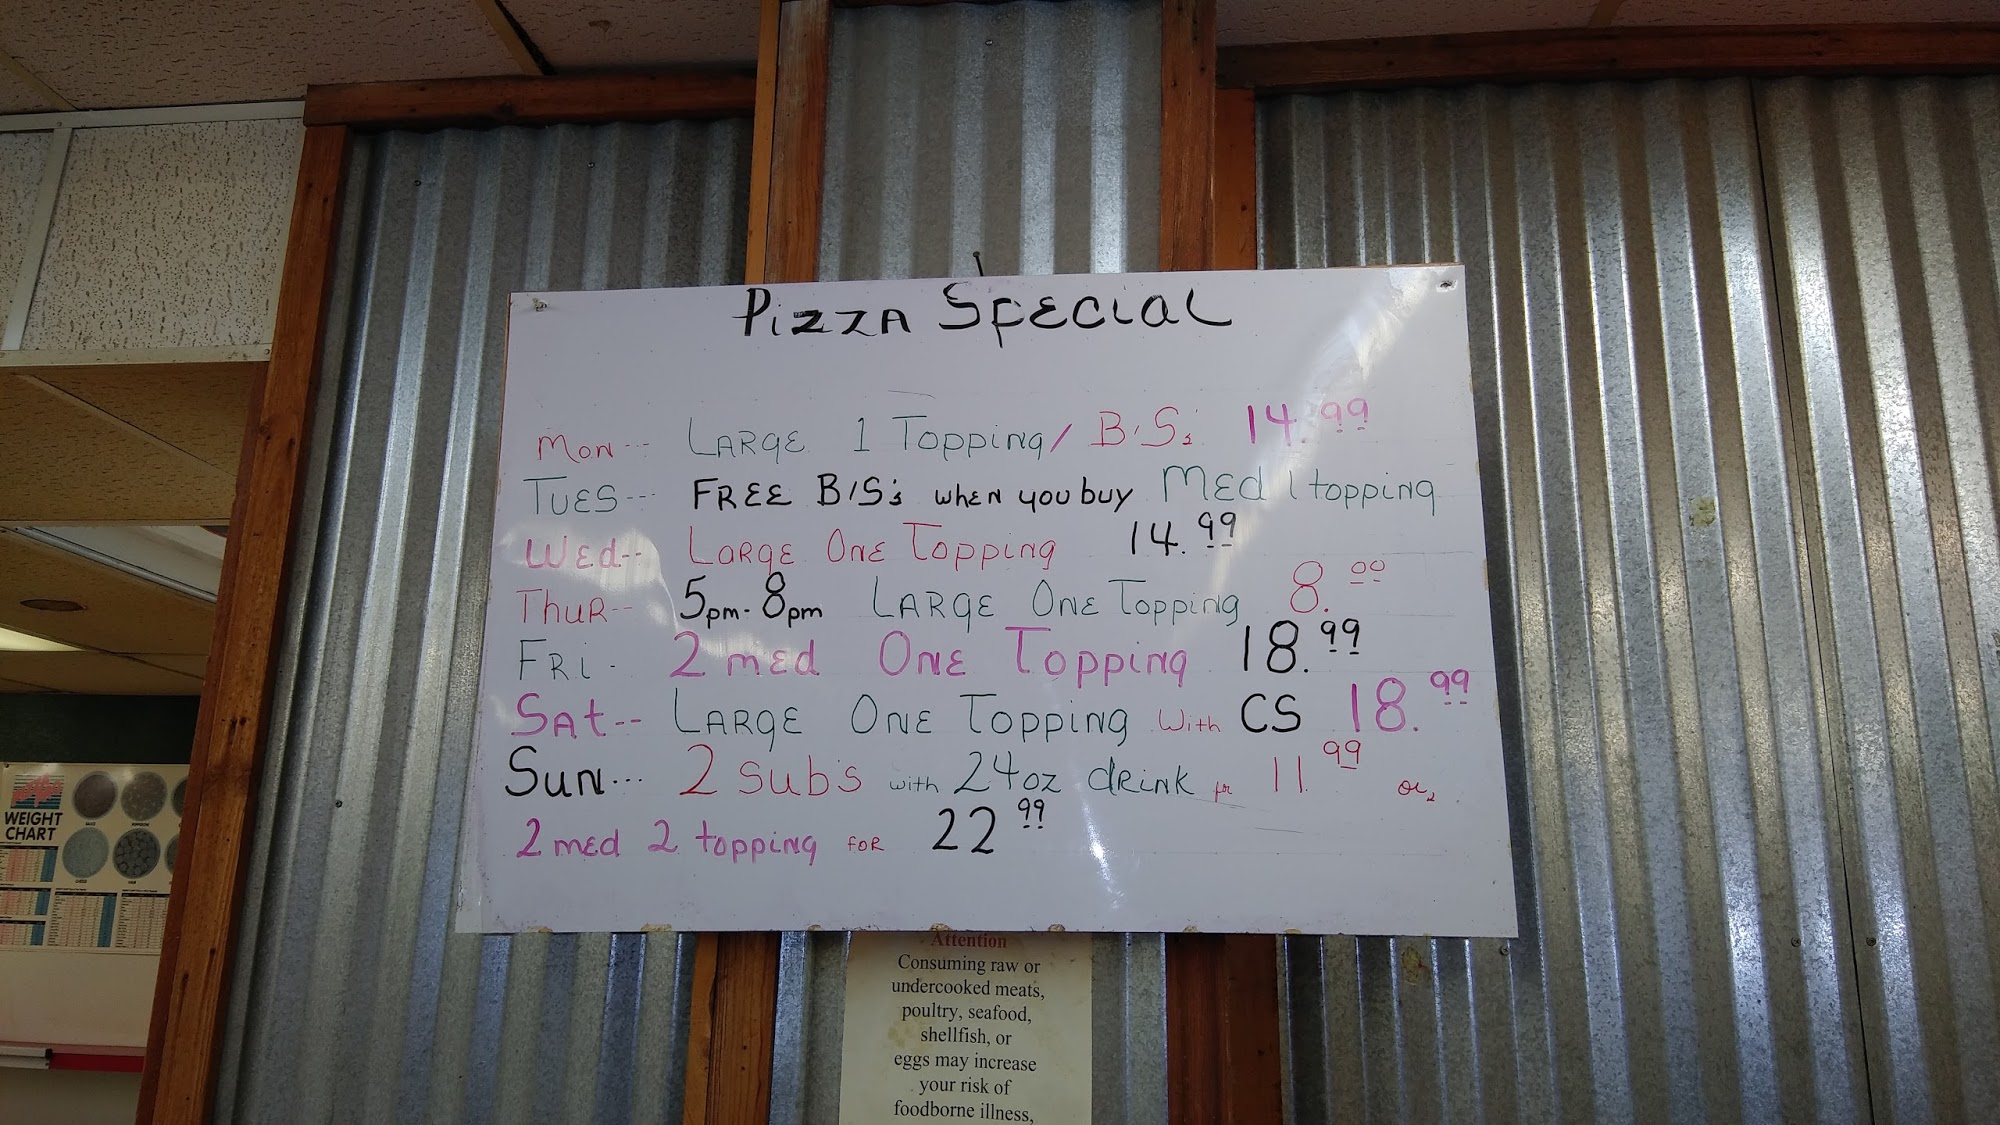 Pizza Special
Mon--- LARGE 1 Topping / B'S's 14.99
TUES--- FREE B/S's when you buy MED 1 topping
Wed-- Large One Topping 14.99
Thur-- 5pm-8pm LARGE One Topping 8.00
Fri- 2 med One Topping 18.99
Sat-- LARGE One Topping with CS 18.99
Sun... 2 sub's with 24oz drink for 11.99 or
2 med 2 topping for 22.99
WEIGHT
CHART
Attention
Consuming raw or
undercooked meats,
poultry, seafood,
shellfish, or
eggs may increase
your risk of
foodborne illness,